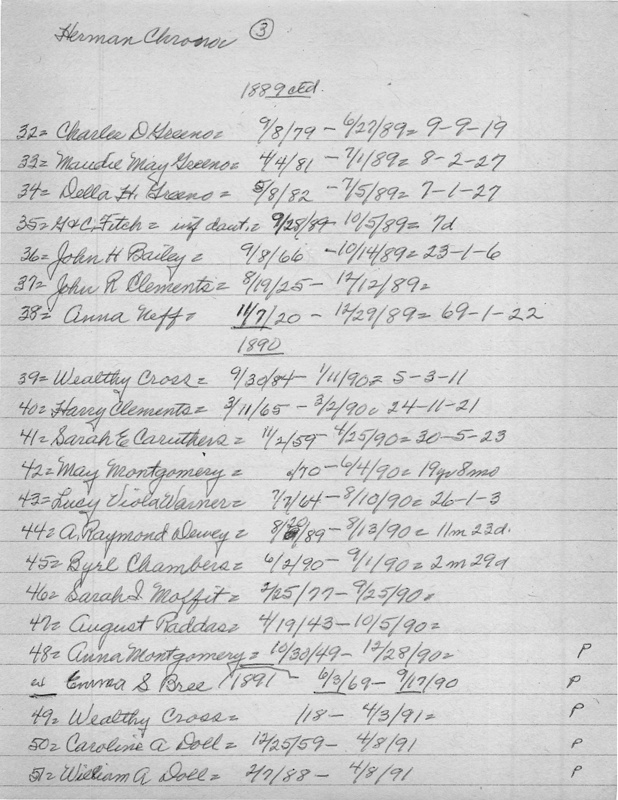 Herman Chronor ③
1889 ctd.
32= Charles D Greeno= 9/8/79 - 6/27/89= 9-9-19
33= Maudie May Greeno= 4/4/81 - 7/1/89= 8-2-27
34= Della H. Greeno = 5/8/82 - 7/5/89= 7-1-27
35= G & C. Fitch = inf daut.= 9/28/89 - 10/5/89= 7d
36= John H Bailey = 9/8/66 - 10/14/89= 23-1-6
37= John R Clements = 8/19/25 - 12/12/89=
38= Anna Neff= 11/7/20 - 12/29/89= 69-1-22
1890
39= Wealthy Cross = 9/30/84 - 1/11/90= 5-3-11
40= Harry Clements = 3/11/65 - 3/2/90= 24-11-21
41= Sarah E Caruthers = 11/2/59 - 4/25/90= 30-5-23
42= May Montgomery = /70 - 6/4/90= 19yr 8mo
43= Lucy Viola Warner= 7/7/64 - 8/10/90= 26-1-3
44= A. Raymond Dewey = 8/20/89 - 8/13/90= 11m 22d.
45= Byrl Chambers = 6/2/90 - 9/1/90= 2m 29d
46= Sarah I. Moffit = 2/25/77 - 9/25/90=
47= August Raddas= 4/19/43 - 10/5/90=
48= Anna Montgomery = 10/30/49 - 12/28/90= P
Emma S Bree 1891 6/3/69 - 9/17/90 P
49= Wealthy Cross= /18 - 4/3/91= P
50= Caroline A Doll = 12/25/59 - 4/8/91 P
51= William A Doll = 2/7/88 - 4/8/91 P